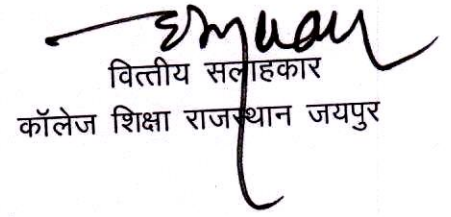 वित्तीय सलाहकार
कॉलेज शिक्षा राजस्थान जयपुर